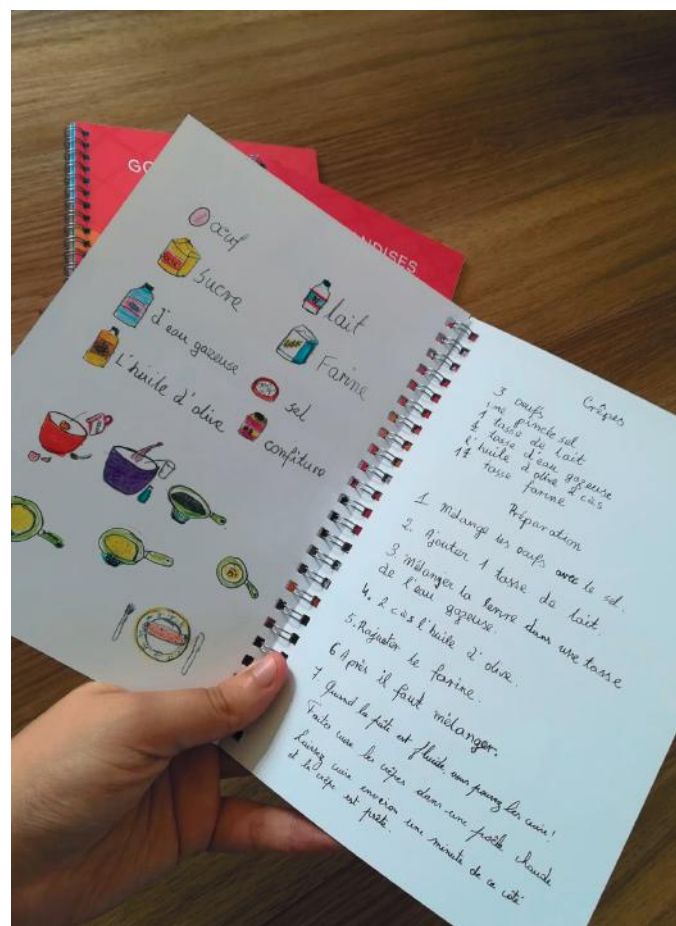 GO
NDISES
œuf
sucre
lait
d'eau gazeuse
Farine
L'huile d'olive
sel
confiture
Crêpes
3 oeufs
une pincée sel
1 tasse de lait
1 tasse d'eau gazeuse
l'huile d'olive 2 càs
tasse farine
Préparation
1. Mélange les oeufs avec le sel.
2. Ajouter 1 tasse de lait.
3. Mélanger la dans une tasse
de l'eau gazeuse.
4. 2 càs l'huile d'olive.
5. Rajouter le farine.
6 Après il faut mélanger.
7 Quand la pâte est fluide, vous pouvez les cuire!
Faites cuire les crêpes dans une poêle chaude
Laissez cuire environ une minute de ce côté
et la crêpe est prête.